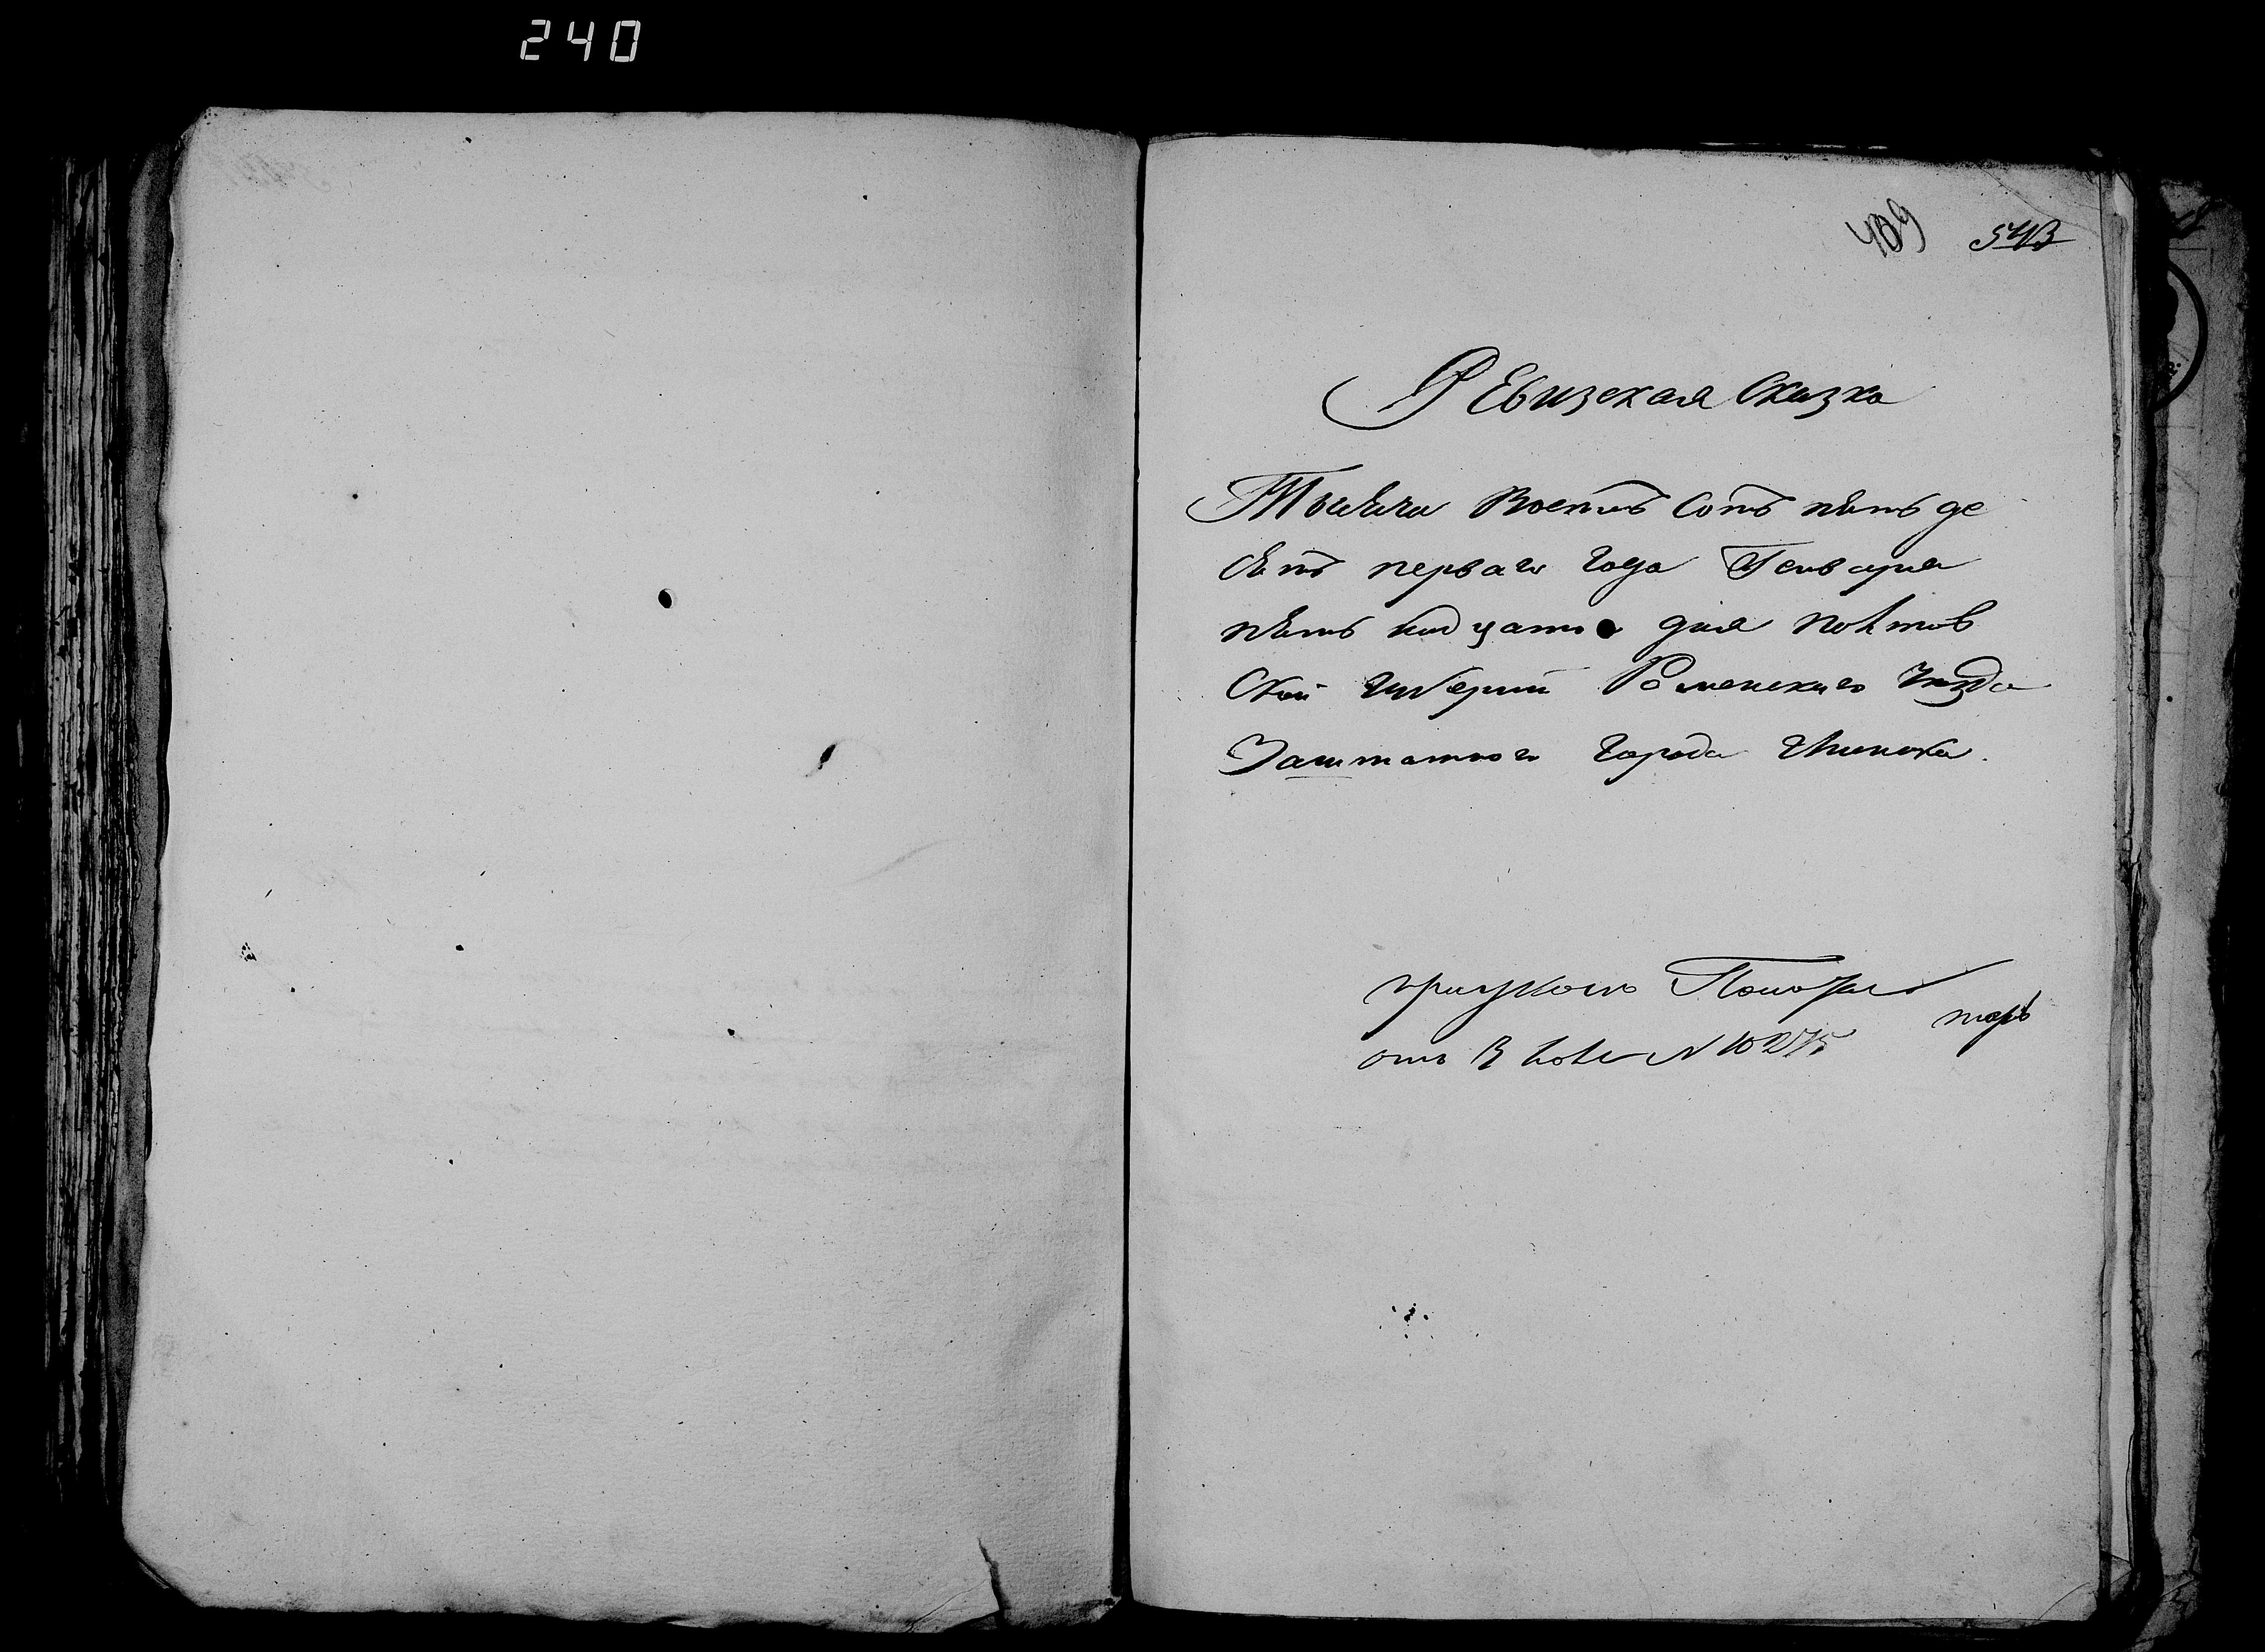 240
409 543
Ревизская Сказка
Тысяча Восемь Сотъ пять де
сятъ перваго года Генваря
пять надцато дня полтов
Ской губерніи Роменскаго Уезда
Заштатного города Глинска
от № 10275